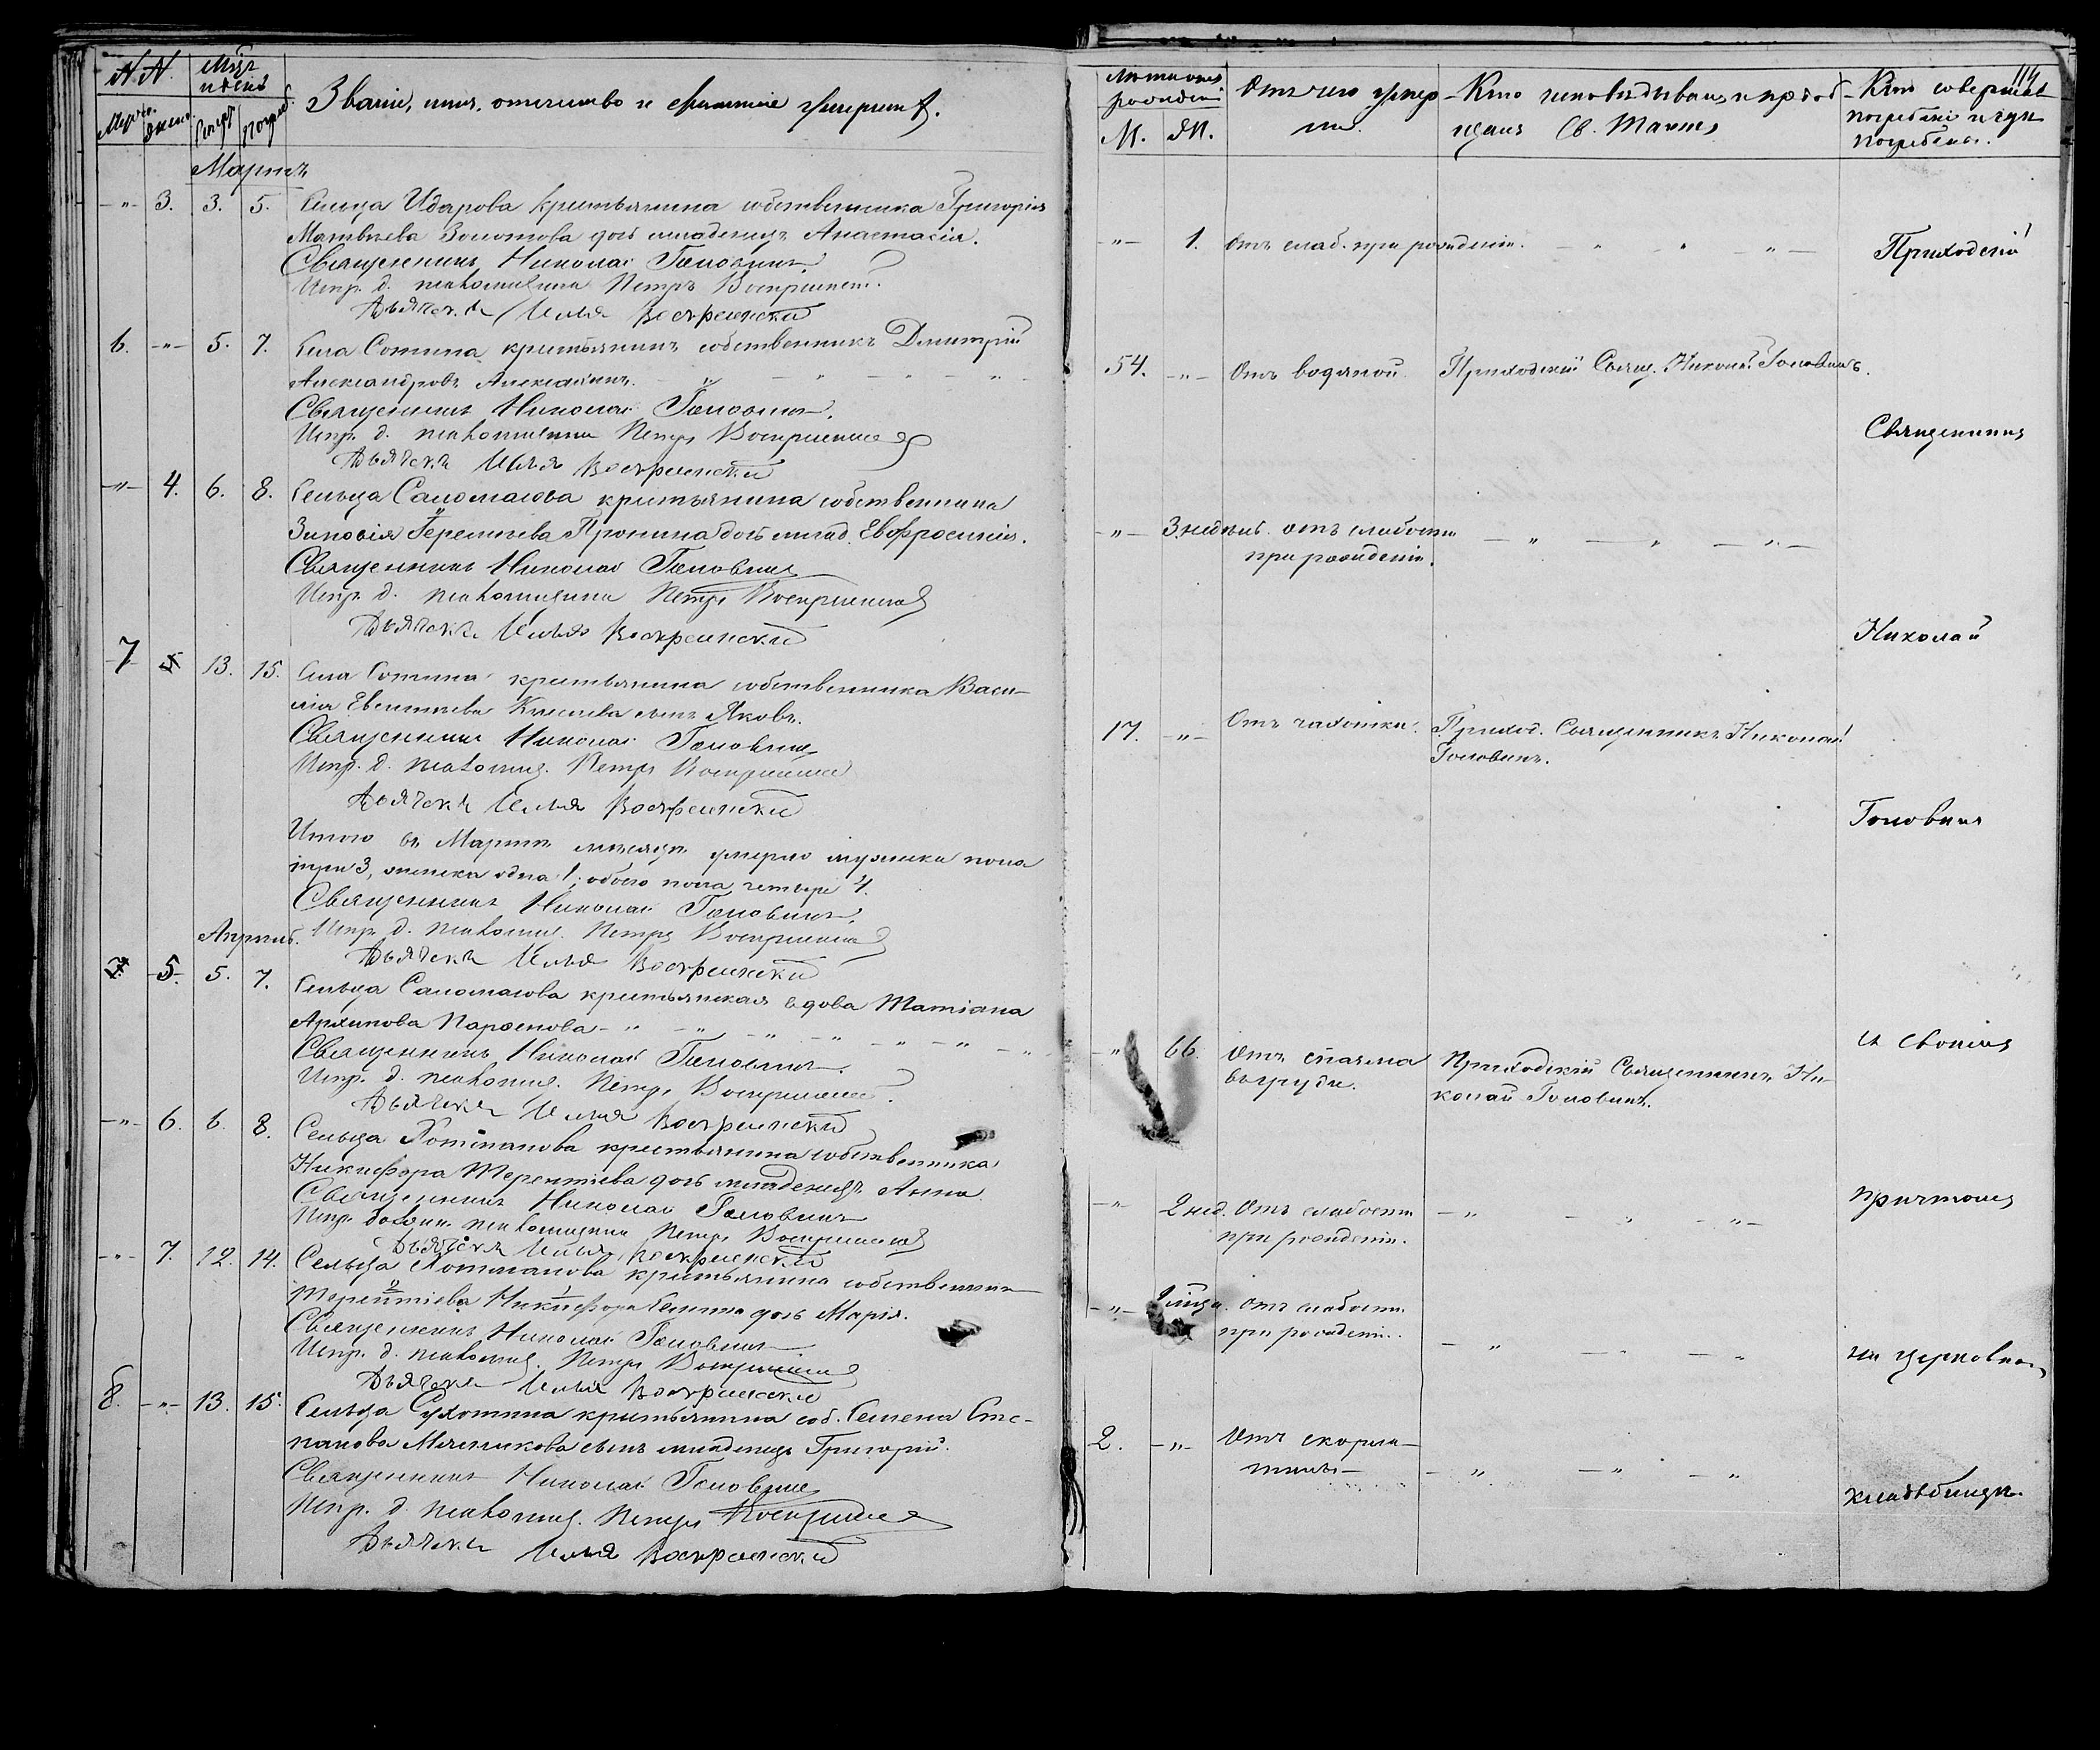 NN.
Мѣсяцъ и день
Званіе, имя, отчество и фамилія умершихъ.
Мартъ
-"- 3. 3. 5. Сельца Идарова крестьянина собственника Григорія
Матвѣева Золотова дочь младенецъ Анастасія.
Священникъ Николай Головинъ.
Испр. д. псаломщика Петръ Воскресенскій
Дьячекъ Илья Воскресенскій
6. -"- 5. 7. Села Сотина крестьянинъ собственникъ Димитрій
Александровъ -"- -"- -"-
Священникъ Николай Головинъ.
Испр. д. псаломщика Петръ Воскресенскій
Дьячекъ Илья Воскресенскій
-"- 4. 6. 8. Сельца Саломасова крестьянина собственника
Зиновія Пронина дочь млад. Евфросинія.
Священникъ Николай Головинъ
Испр. д. псаломщика Петръ Воскресенскій
Дьячекъ Илья Воскресенскій
7 5 13. 15. Села Сотина крестьянина собственника Васи-
лія сынъ Яковъ.
Священникъ Николай Головинъ
Испр. д. псаломщ. Петръ Воскресенскій
Дьячекъ Илья Воскресенскій
Итого въ Мартѣ мѣсяцѣ умерло мужска пола
три 3, женска одна 1, обоего пола четыре 4.
Священникъ Николай Головинъ.
Апрѣль. Испр. д. псаломщ. Петръ Воскресенскій
Дьячекъ Илья Воскресенскій
7. 5. 5. 7. Сельца Саломасова крестьянская вдова Татіана
Архипова Парѳенова -"- -"- -"- -"- -"- -"-
Священникъ Николай Головинъ.
Испр. д. псаломщ. Петръ Воскресенскій
Дьячекъ Илья Воскресенскій
-"- 6. 6. 8. Сельца крестьянина собственника
Никифора Терентіева дочь младенецъ Анна
Священникъ Николай Головинъ
Испр. должн. псаломщика Петръ Воскресенскій
Дьячекъ Илья Воскресенскій
-"- 7. 12. 14. Сельца крестьянина собственника
Терентіева Никифора дочь Марія.
Священникъ Николай Головинъ
Испр. д. псаломщ. Петръ Воскресенскій
Дьячекъ Илья Воскресенскій
8. -"- 13. 15. Сельца Сухотина крестьянина соб. Семена Сте-
панова Мясникова сынъ младенецъ Григорій.
Священникъ Николай Головинъ
Испр. д. псаломщ. Петръ Воскресенскій
Дьячекъ Илья Воскресенскій
114
М. Ж.
Отъ чего умеръ
Кто исповѣдывалъ и пріоб-
щалъ Св. Таинъ
Кто совершалъ
погребеніе и гдѣ
погребены.
-"- 1. Отъ слаб. при рожденіи. -"- -"- -"-
Приходскій
54. -"- Отъ водяной Приходскій Свящ. Николай Головинъ.
Священникъ
-"- 3 недѣль отъ слабости -"- -"- -"-
при рожденіи.
Николай
17. -"- Отъ чахотки. Приход. Священникъ Николай
Головинъ.
Головинъ
-"- 66 Отъ спазма Приходскій Священникъ Ни-
въ груди. колай Головинъ.
съ своимъ
-"- 2 нед. Отъ слабости -"- -"- -"-
при рожденіи.
причтомъ
-"- отъ слабости
при рожденіи. -"- -"- -"-
на церковномъ
2. -"- Отъ скарла-
тины -"- -"- -"-
кладбищѣ.